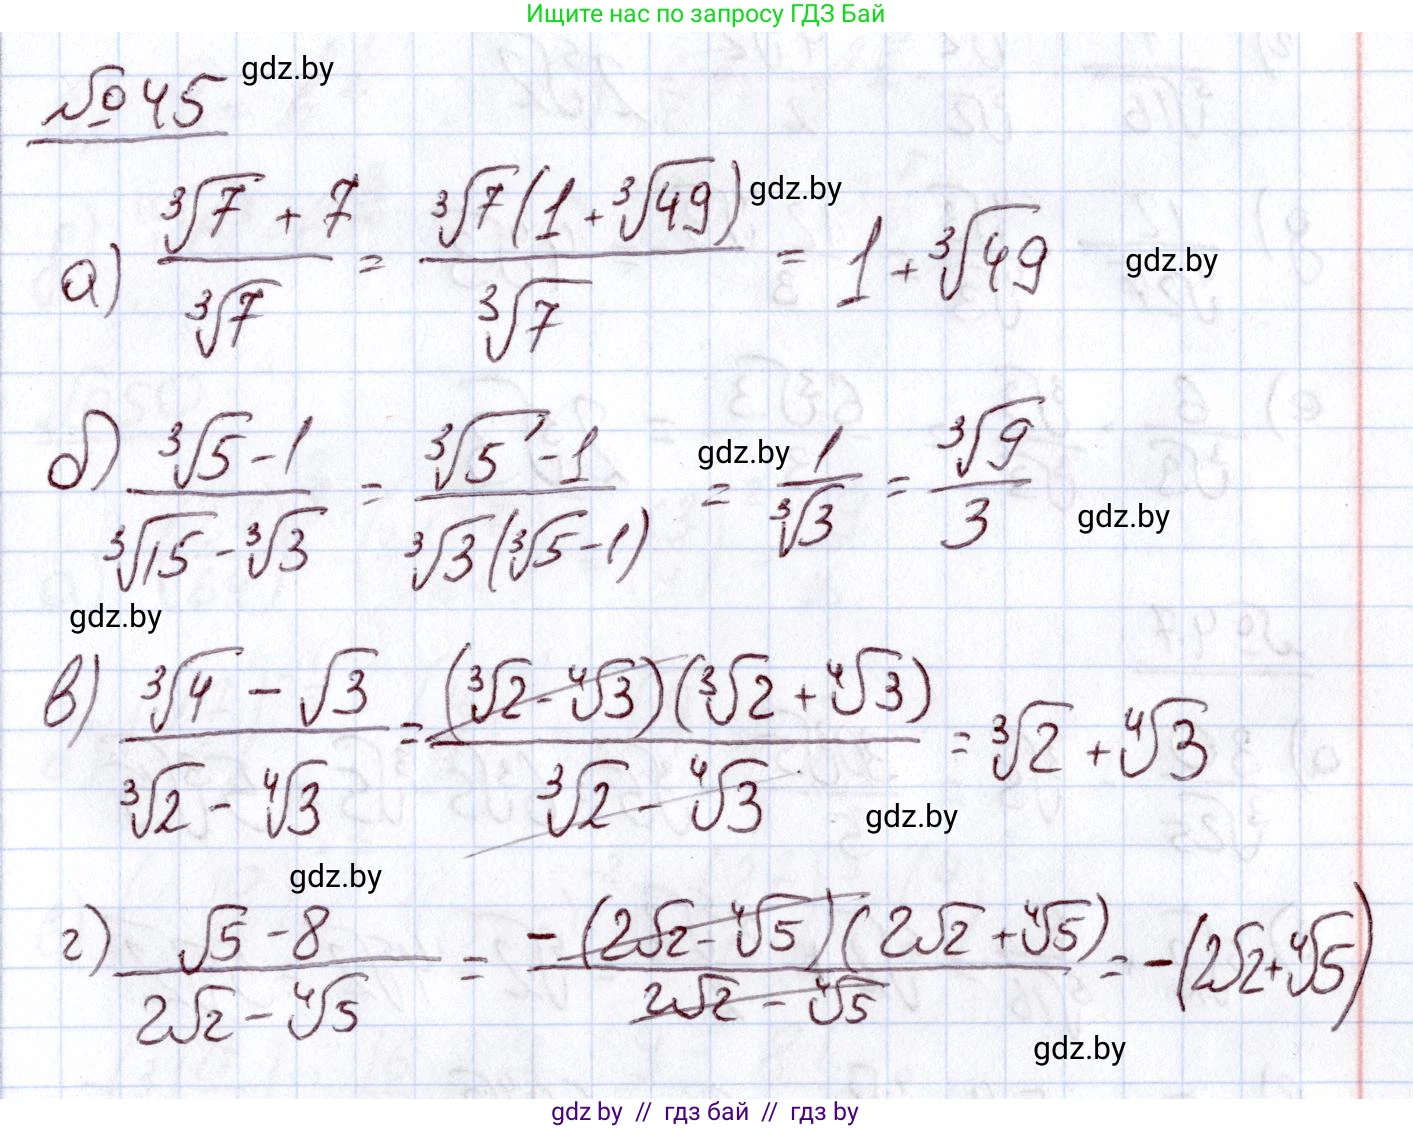 Ищите нас по запросу ГДЗ Бай
№45 gdz.by
а) (∛7 + 7)/∛7 = ∛7(1 + ∛49)/∛7 = 1 + ∛49
gdz.by
gdz.by
б) (∛5 - 1)/(∛15 - ∛3) = (∛5 - 1)/(∛3(∛5 - 1)) = 1/∛3 = ∛9/3
gdz.by
gdz.by
gdz.by
в) (∛4 - √3)/(∛2 - ∜3) = (∛2 - ∜3)(∛2 + ∜3)/(∛2 - ∜3) = ∛2 + ∜3
gdz.by
gdz.by
г) (√5 - 8)/(2√2 - ∜5) = -(2√2 - ∜5)(2√2 + ∜5)/(2√2 - ∜5) = -(2√2 + ∜5)
gdz.by
gdz.by // гдз бай // гдз by